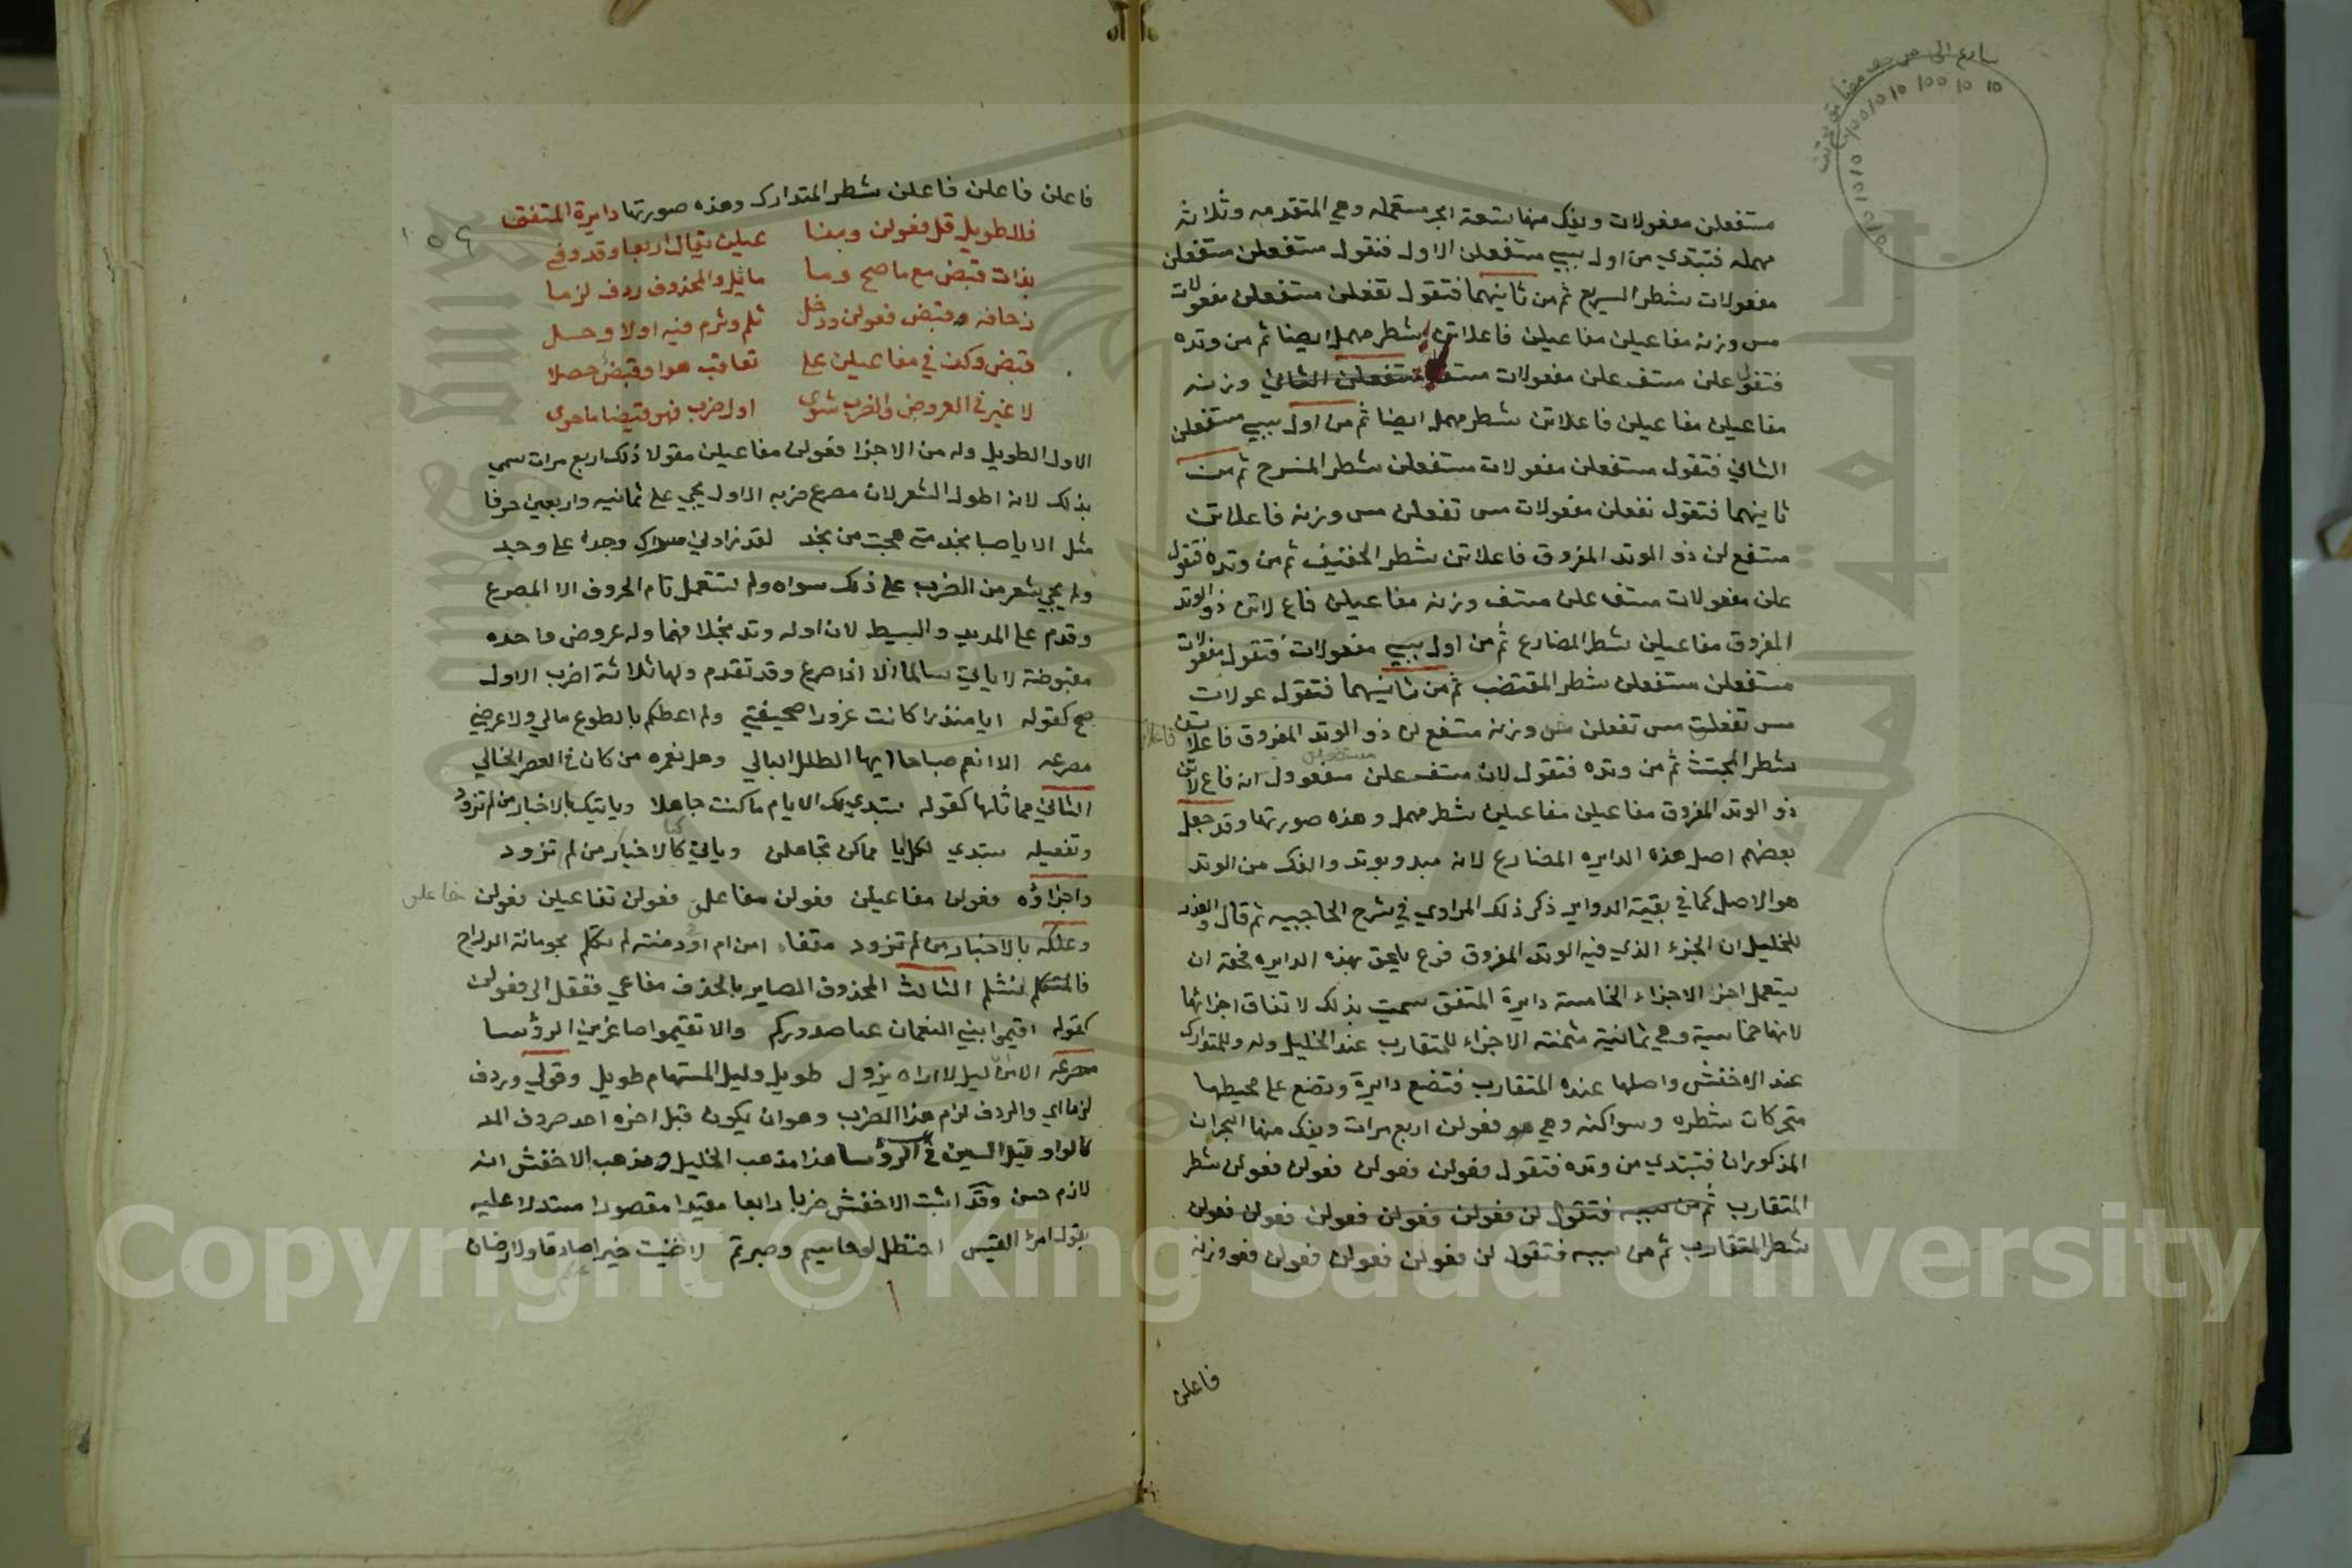 مستفعلن مفعولات وينفك منها تسعة ابحر مستعمله وهي المتقدمه وثلاثة
مهمله فتبتدي من اول سببي مستفعلن الاول فتقول مستفعلن مستفعلن
مفعولات شطر السريع ثم من ثانيهما فتقول تفعلن مستفعلن مفعولات
مس وزنه مفاعيلن مفاعيلن فاعلاتن شطر مهمل ايضا ثم من وتده
فتقول علن مستفعلن مفعولات مستف مستفعلن الثاني وزنه
مفاعيلن مفاعيلن فاعلاتن شطر مهمل ايضا ثم من اول سببي مستفعلن
الثاني فتقول مستفعلن مفعولات مستفعلن شطر المنسرح ثم من
ثانيهما فتقول تفعلن مفعولات مس تفعلن مس وزنه فاعلاتن
مستفع لن ذو الوتد المفروق فاعلاتن شطر الخفيف ثم من وتده فتقول
علن مفعولات مستف علن مستف وزنه مفاعيلن فاع لاتن ذو الوتد
المفروق مفاعيلن شطر المضارع ثم من اول سببي مفعولات فتقول مفعولات
مستفعلن مستفعلن شطر المقتضب ثم من ثانيهما فتقول عولات
مس تفعلن مس تفعلن مف وزنه مستفع لن ذو الوتد المفروق فاعلاتن
شطر المجتث ثم من وتده فتقول لات مستفعلن مستفعلن مفعو وزنه فاع لاتن
ذو الوتد المفروق مفاعيلن مفاعيلن شطر مهمل وهذه صورتها وقد جعل
بعضهم اصل هذه الدايره المضارع لانه مبدو بوتد والفك من الوتد
هو الاصل كما في بقية الدواير ذكر ذلك المرادي في شرح الحاجبيه ثم قال والعذر
للخليل ان الجزء الذي فيه الوتد المفروق فرع يليق بهذه الدايره فحقه ان
يستعمل اخر الاجزاء الخامسة دايرة المتفق سميت بذلك لاتفاق اجزائها
لانها خماسية وهي ثمانية مثمنة الاجزاء للمتقارب عند الخليل وله وللمتدارك
عند الاخفش واصلها عنده المتقارب فتضع دايرة وتضع على محيطها
متحركات شطره وسواكنه وهي هو فعولن اربع مرات وينفك منها البحران
المذكوران فتبتدي من وتده فتقول فعولن فعولن فعولن فعولن شطر
المتقارب ثم من سببه فتقول لن فعولن فعولن فعولن فعولن فعولن
شطر المتقارب ثم من سببه فتقول لن فعولن فعولن فعولن فعو وزنه
فاعلن
فاعلن فاعلن فاعلن شطر المتدارك وهذه صورتها دايرة المتفق
فللطويل قل فعولن ومفا عيلن يقال اربعا وقد وفى
بذات قبض مع ما صح وما ماثل والمحذوف ردف لزما
زحافه وقبض فعولن ودخل ثلم وثرم فيه اولا وحل
قبض وكف في مفاعيلن على تعاقب هوا وقبض حصلا
لا غير في العروض والضرب سوى اول ضرب فهو قبضا ما حوى
الاول الطويل وله من الاجزا فعولن مفاعيلن مقولا ذلك اربع مرات سمي
بذلك لانه اطول الشعر لان مصرع ضربه الاول يجي على ثمانيه واربعين حرفا
مثل الا يا صبا نجد متى هجت من نجد لقد زادني مسراك وجدا على وجد
ولم يجي شعر من الضرب على ذلك سواه ولم يستعمل تام الحروف الا المصرع
وقدم على المديد والبسيط لان اوله وتد بخلافهما وله عروض واحده
مقبوضة لا ياتي سالما الا اذا صرع وقد تقدم ولها ثلاثة اضرب الاول
صح كقوله ابا منذر كانت غرورا صحيفتي ولم اعطكم بالطوع مالي ولا عرضي
مصرعه الا انعم صباحا ايها الطلل البالي وهل يعمن من كان في العصر الخالي
الثاني مماثلها كقوله ستبدي لك الايام ما كنت جاهلا وياتيك بالاخبار من لم تزود
وتفعيله ستبدي لكل ايا مماكن تجاهلن وياتي كالاخبار من لم تزود
واجزاؤه فعولن مفاعيلن فعولن مفاعلن فعولن مفاعيلن فعولن مفاعلن
بالاخبار من لم تزود مقفاه امن ام اوفى دمنة لم تكلم بحومانة الدراج
فالمتثلم الثالث المحذوف الصاير بالحذف مفاعي فنقل الى فعولن
كقوله اقيموا بني النعمان عنا صدوركم والا تقيموا صاغرين الرؤسا
مصرعه ليل لا اراه يزول طويل وليل المستهام طويل وقولي وردف
لزما اي والردف لزم هذا الضرب وهو ان يكون قبل اخره احد حروف المد
كالواو قبل السين في الرؤسا هذا مذهب الخليل ومذهب الاخفش انه
لازم حسن وقد اثبت الاخفش ضربا رابعا مقيدا مقصورا مستدلا عليه
بقول امرئ القيس احنظل لو حاميتم وصبرتم لاثنيت خيرا صادقا ولارضان
Copyright © King Saud University